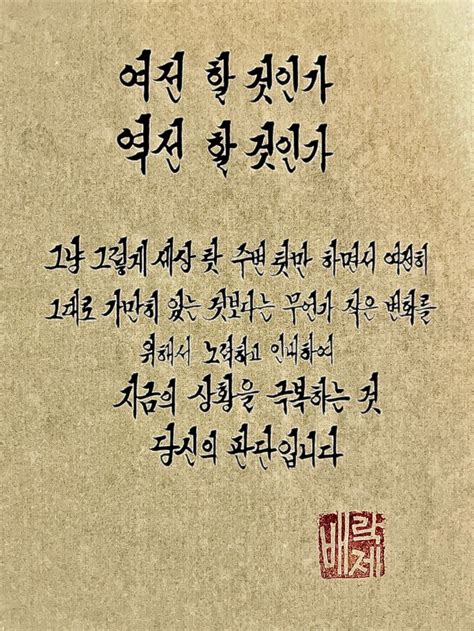 여전 할 것인가
역전 할 것인가
그냥 그렇게 세상 탓 주변 탓만 하면서 여전히
그대로 가만히 있는 것보다는 무언가 작은 변화를
위해서 노력하고 인내하여
지금의 상황을 극복하는 것
당신의 판단입니다
배락제